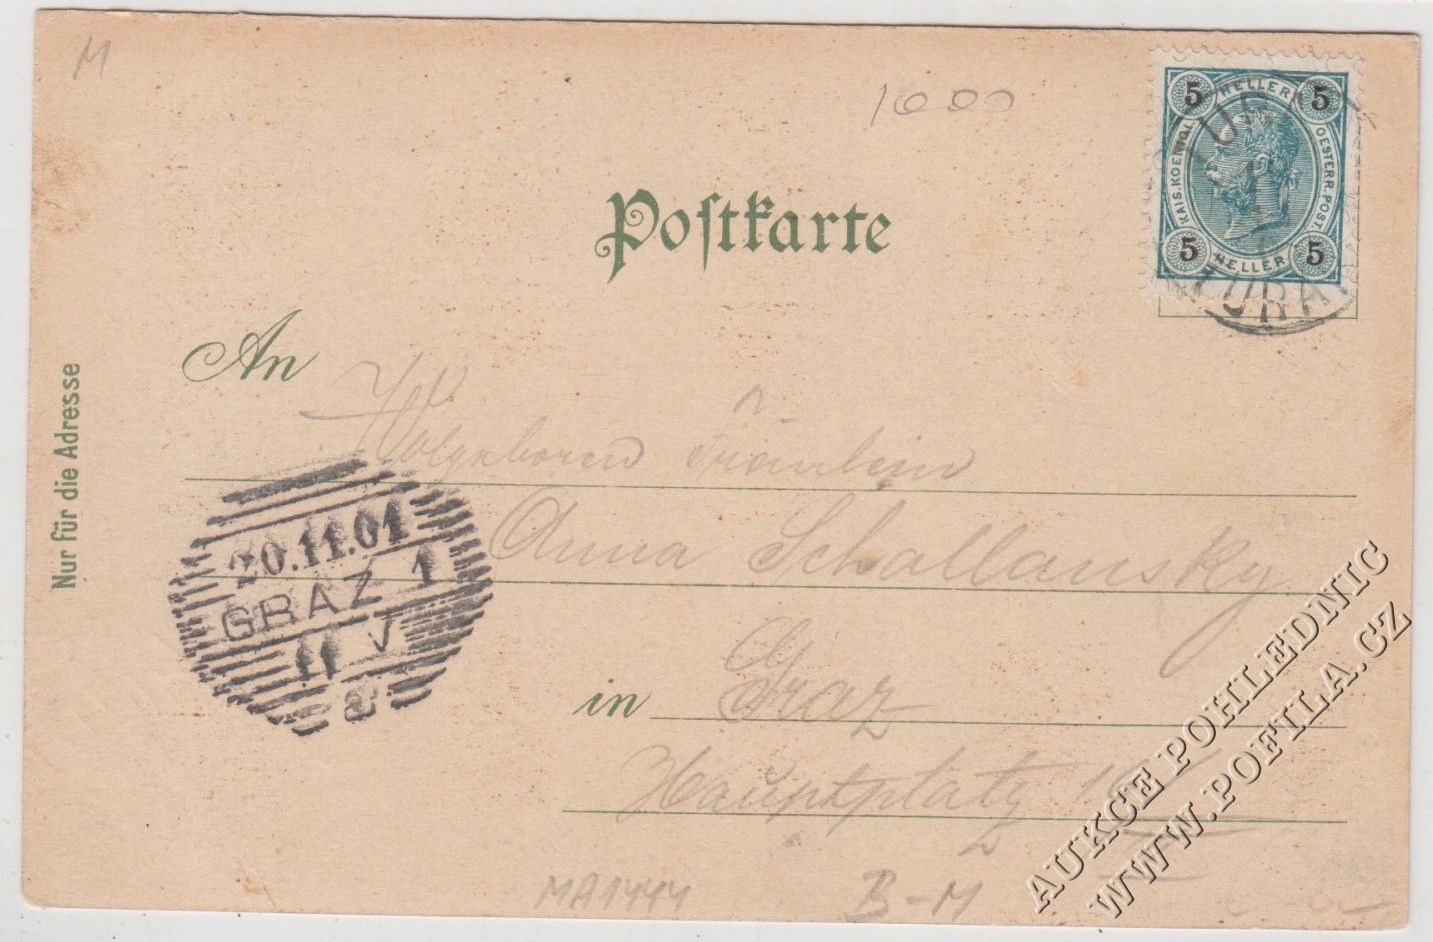 M
1000
5 HELLER 5
KAIS. KOENIGL.
OESTERR. POST.
5 HELLER 5
Postkarte
An
Wolgeboren Fräulein
Anna Schallansky
in Graz
Hauptplatz
Nur für die Adresse
20.11.01
GRAZ 1
11 V
MA1444
B-M
AUKCE POHLEDNIC
WWW.POFILA.CZ